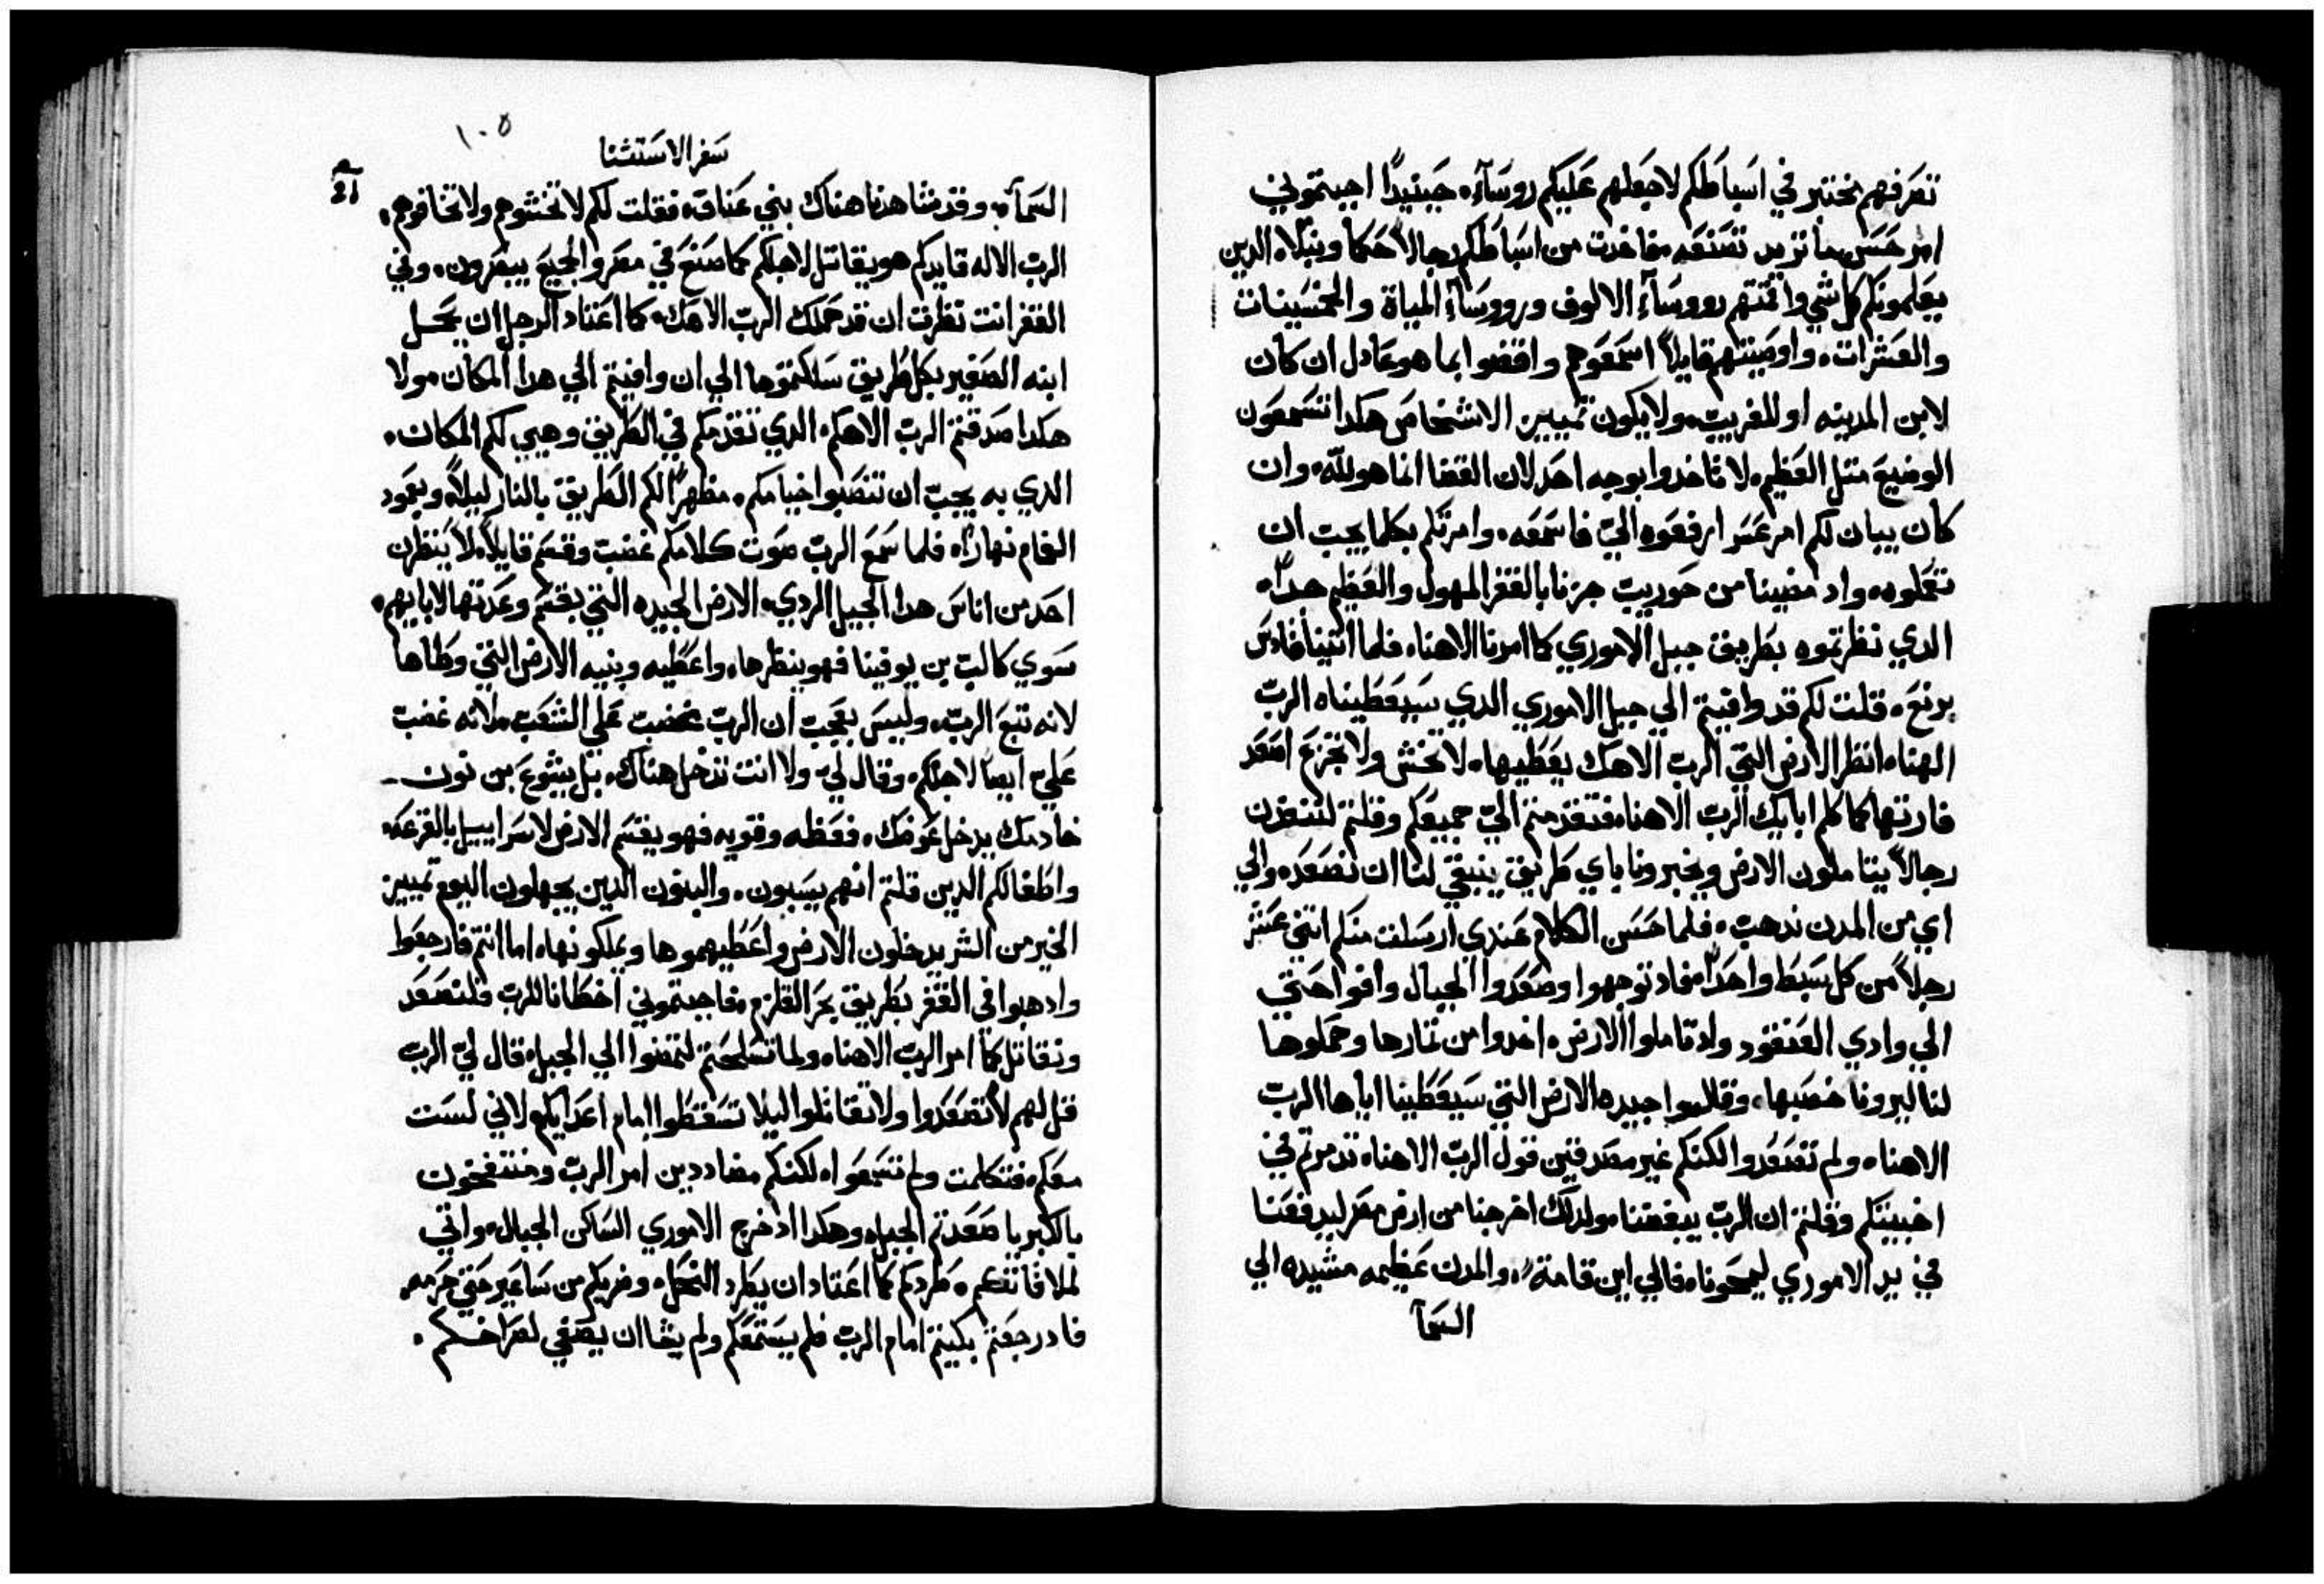 تصرفهم مختبر في اسباطكم لاجعلهم عليكم روسآء. حينيدًا اجبتموني
امر حسن ما تريد تصنعه. فاخدت من اسباطكم رجالاً حكما ونبلاء الدين
يعلمونكم كل شي واقمتهم رووسآء الالوف ورووسآء المياة والخمسينات
والعشرات. واوصيتهم قايلاً اسمعوهم واقضوا بما هو عادل ان كان
لابن المدينه او للغريب. ولا يكون تمييز الاشخاص هكدا تسمعون
الوضيع متل العظيم. لا تاخدوا بوجه احد لان القضا انما هو لله. وان
كان يبان لكم امر عسر ارفعوه اليّ فاسمعه. وامرتكم بكلما يجب ان
تعملوه. واد مضينا من حوريب جزنا بالقفر المهول والعظيم جدًا.
الدي نظرتموه بطريق جبل الاموري كما امرنا الاهنا. فلما اتينا قادس
برنع. قلت لكم قد وافيتم الي جبل الاموري الدي سيعطيناه الرب
الهنا. انظر الارض التي الرب الاهك يعطيها. لا تخش ولا تجزع اصعد
فارتها كما كلم ابايك الرب الاهنا. فتقدمتم اليّ جميعكم وقلتم لننفدن
رجالاً يتاملون الارض ويخبرونا باي طريق ينبغي لنا ان نصعد. والي
اي من المدن ندهب. فلما حسن الكلام عندي ارسلت منكم اتني عشر
رجلاً من كل سبط واحدًا. فاد توجهوا وصعدوا الجبال وافوا حتي
الي وادي العنقود واد تاملوا الارض. اخدوا من تمارها وحملوها
لنا ليرونا خصبها. وقالوا جيده الارض التي سيعطينا اياها الرب
الاهنا. ولم تصعدوا لكنكم غير مصدقين قول الرب الاهنا. تدمرتم في
اخبيتكم وقلتم ان الرب يبغضنا. ولدلك اخرجنا من ارض مصر ليدفعنا
في يد الاموري ليمحونا. فالي اين قامة. والمدن عظيمه مشيده الي
السمآ
١٠٥
سفر الاستثنا
السمآ. وقد شاهدنا هناك بني عناق. فقلت لكم لا تخشوهم ولا تخافوهم.
الرب الاله قايدكم هو يقاتل لاجلكم كما صنع في مصر والجميع يبصرون. وفي
القفر انت نظرت ان قد حملك الرب الاهك. كما اعتاد الرجل ان يحمل
ابنه الصغير بكل طريق سلكتموها الي ان وافيتم الي هدا المكان. ولا
هكدا صدقتم الرب الاهكم. الدي تقدمكم في الطريق وهيي لكم المكان.
الدي به يجب ان تنصبوا خيامكم. مظهرًا لكم الطريق بالنار ليلاً. وبعمود
الغمام نهارًا. فلما سمع الرب صوت كلامكم غضب وقسم قايلاً. لا ينظرن
احد من اناس هدا الجيل الردي. الارض الجيده التي بقسم وعدتها لابايهم.
سوي كالب بن يوفينا فهو ينظرها. واعطيه وبنيه الارض التي وطاها
لانه تبع الرب. وليس بعجب ان الرب غضب علي الشعب. لانه غضب
علي ايضًا لاجلكم. وقال لي ولا انت تدخل هناك. بل يشوع بن نون
خادمك يدخل عوضك. فعظه وقويه فهو يقسم الارض لاسراييل بالقرعه.
واطفالكم الدين قلتم انهم يسبون. والبنون الدين يجهلون اليوم تمييز
الخير من الشر يدخلون الارض واعطيهموها ويملكونها. اما انتم فارجعوا
وادهبوا في القفر بطريق بحر القلزم. فاجبتموني اخطانا للرب فلنصعد
ونقاتل كما امر الرب الاهنا. ولما تسلحتم لتمضوا الي الجبل. قال لي الرب
قل لهم لا تصعدوا ولا تقاتلوا ليلا تسقطوا امام اعدايكم لاني لست
معكم. فتكلمت ولم تسمعوا. لكنكم مضاددين امر الرب ومنتفخون
بالكبريا صعدتم الجبل. وهكدا اد خرج الاموري الساكن الجبال. واتي
لملاقاتكم. طردكم كما اعتاد ان يطرد النحل. وضربكم من ساعير حتي حرمه.
فاد رجعتم بكيتم امام الرب فلم يستمعكم ولم يشا ان يصغي لصراخكم.